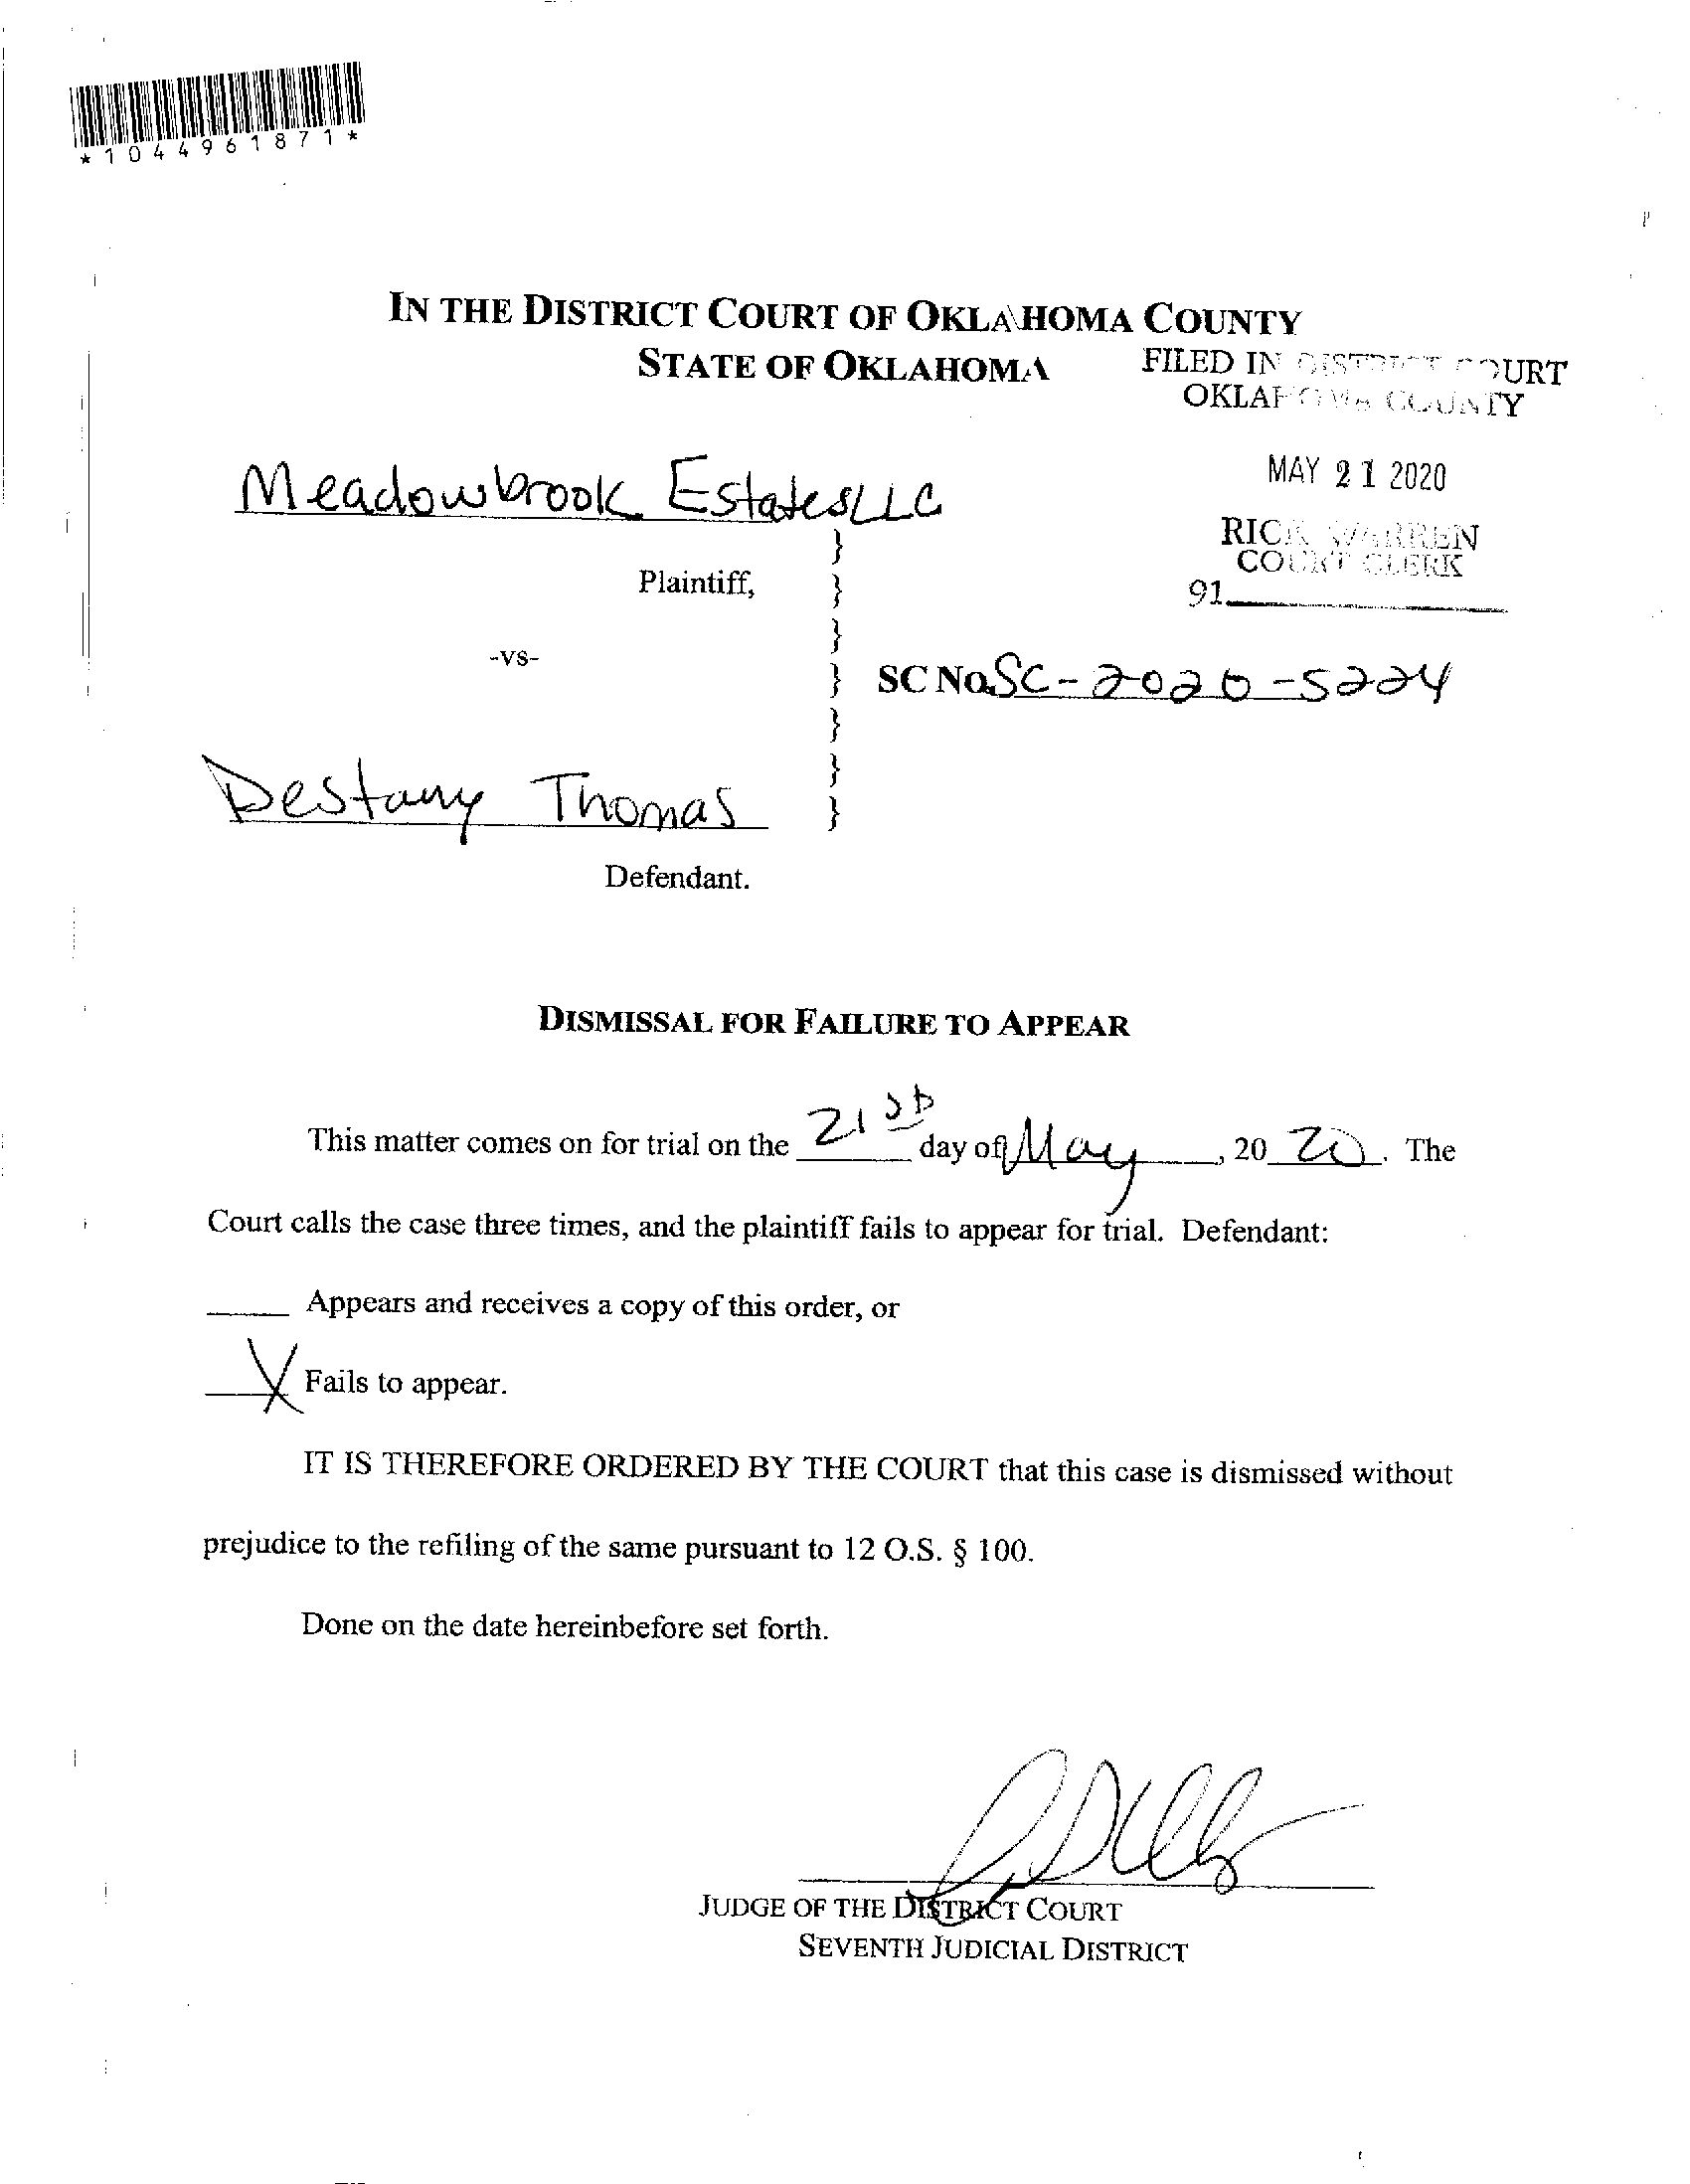 *1044961871*
IN THE DISTRICT COURT OF OKLAHOMA COUNTY
STATE OF OKLAHOMA
FILED IN DISTRICT COURT
OKLAHOMA COUNTY
MAY 21 2020
RICK WARREN
COURT CLERK
91
Meadowbrook Estates LLC
Plaintiff,
-vs-
SC No. SC-2020-5224
Destany Thomas
Defendant.
DISMISSAL FOR FAILURE TO APPEAR
This matter comes on for trial on the 21 day of May, 20 20. The
Court calls the case three times, and the plaintiff fails to appear for trial. Defendant:
____ Appears and receives a copy of this order, or
X Fails to appear.
IT IS THEREFORE ORDERED BY THE COURT that this case is dismissed without
prejudice to the refiling of the same pursuant to 12 O.S. § 100.
Done on the date hereinbefore set forth.
JUDGE OF THE DISTRICT COURT
SEVENTH JUDICIAL DISTRICT